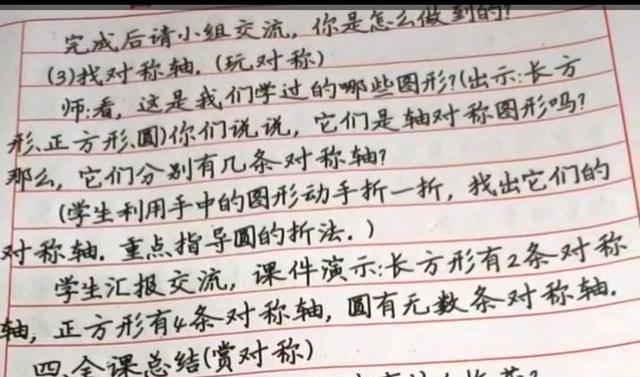 完成后请小组交流，你是怎么做到的？
(3)找对称轴.(玩对称)
师:看，这是我们学过的哪些图形?(出示:长方
形、正方形、圆)你们说说，它们是轴对称图形吗?
那么，它们分别有几条对称轴?
(学生利用手中的图形动手折一折，找出它们的
对称轴.重点指导圆的折法.)
学生汇报交流，课件演示:长方形有2条对称
轴，正方形有4条对称轴，圆有无数条对称轴.
四、全课总结(赏对称)